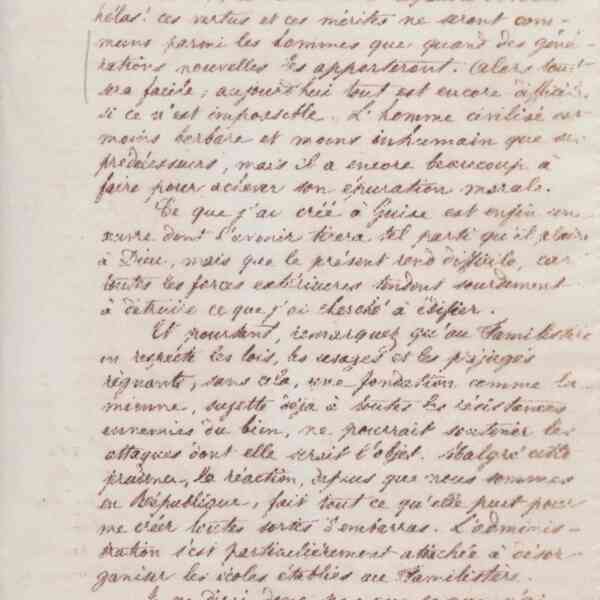 hélas! ces vertus et ces mérites ne seront com-
muns parmi les hommes que quand des géné-
rations nouvelles les apporteront. Alors tout
sera facile; aujourd'hui tout est encore difficile
si ce n'est impossible. L'homme civilisé est
moins barbare et moins inhumain que ses
prédécesseurs, mais il a encore beaucoup à
faire pour achever son épuration morale.
Ce que j'ai créé à Guise est enfin une
œuvre dont l'avenir tirera tel parti qu'il plaira
à Dieu, mais que le présent rend difficile, car
toutes les forces extérieures tendent sourdement
à détruire ce que j'ai cherché à édifier.
Et pourtant, remarquez qu'au Familistère
on respecte les lois, les usages et les préjugés
régnants, sans cela, une fondation comme la
mienne, sujette déjà à toutes les résistances
ennemies du bien, ne pourrait soutenir les
attaques dont elle serait l'objet. Malgré cette
prudence, la réaction, depuis que nous sommes
en République, fait tout ce qu'elle peut pour
me créer toutes sortes d'embarras. L'adminis-
tration s'est particulièrement attachée à désor-
ganiser les écoles établies au Familistère.